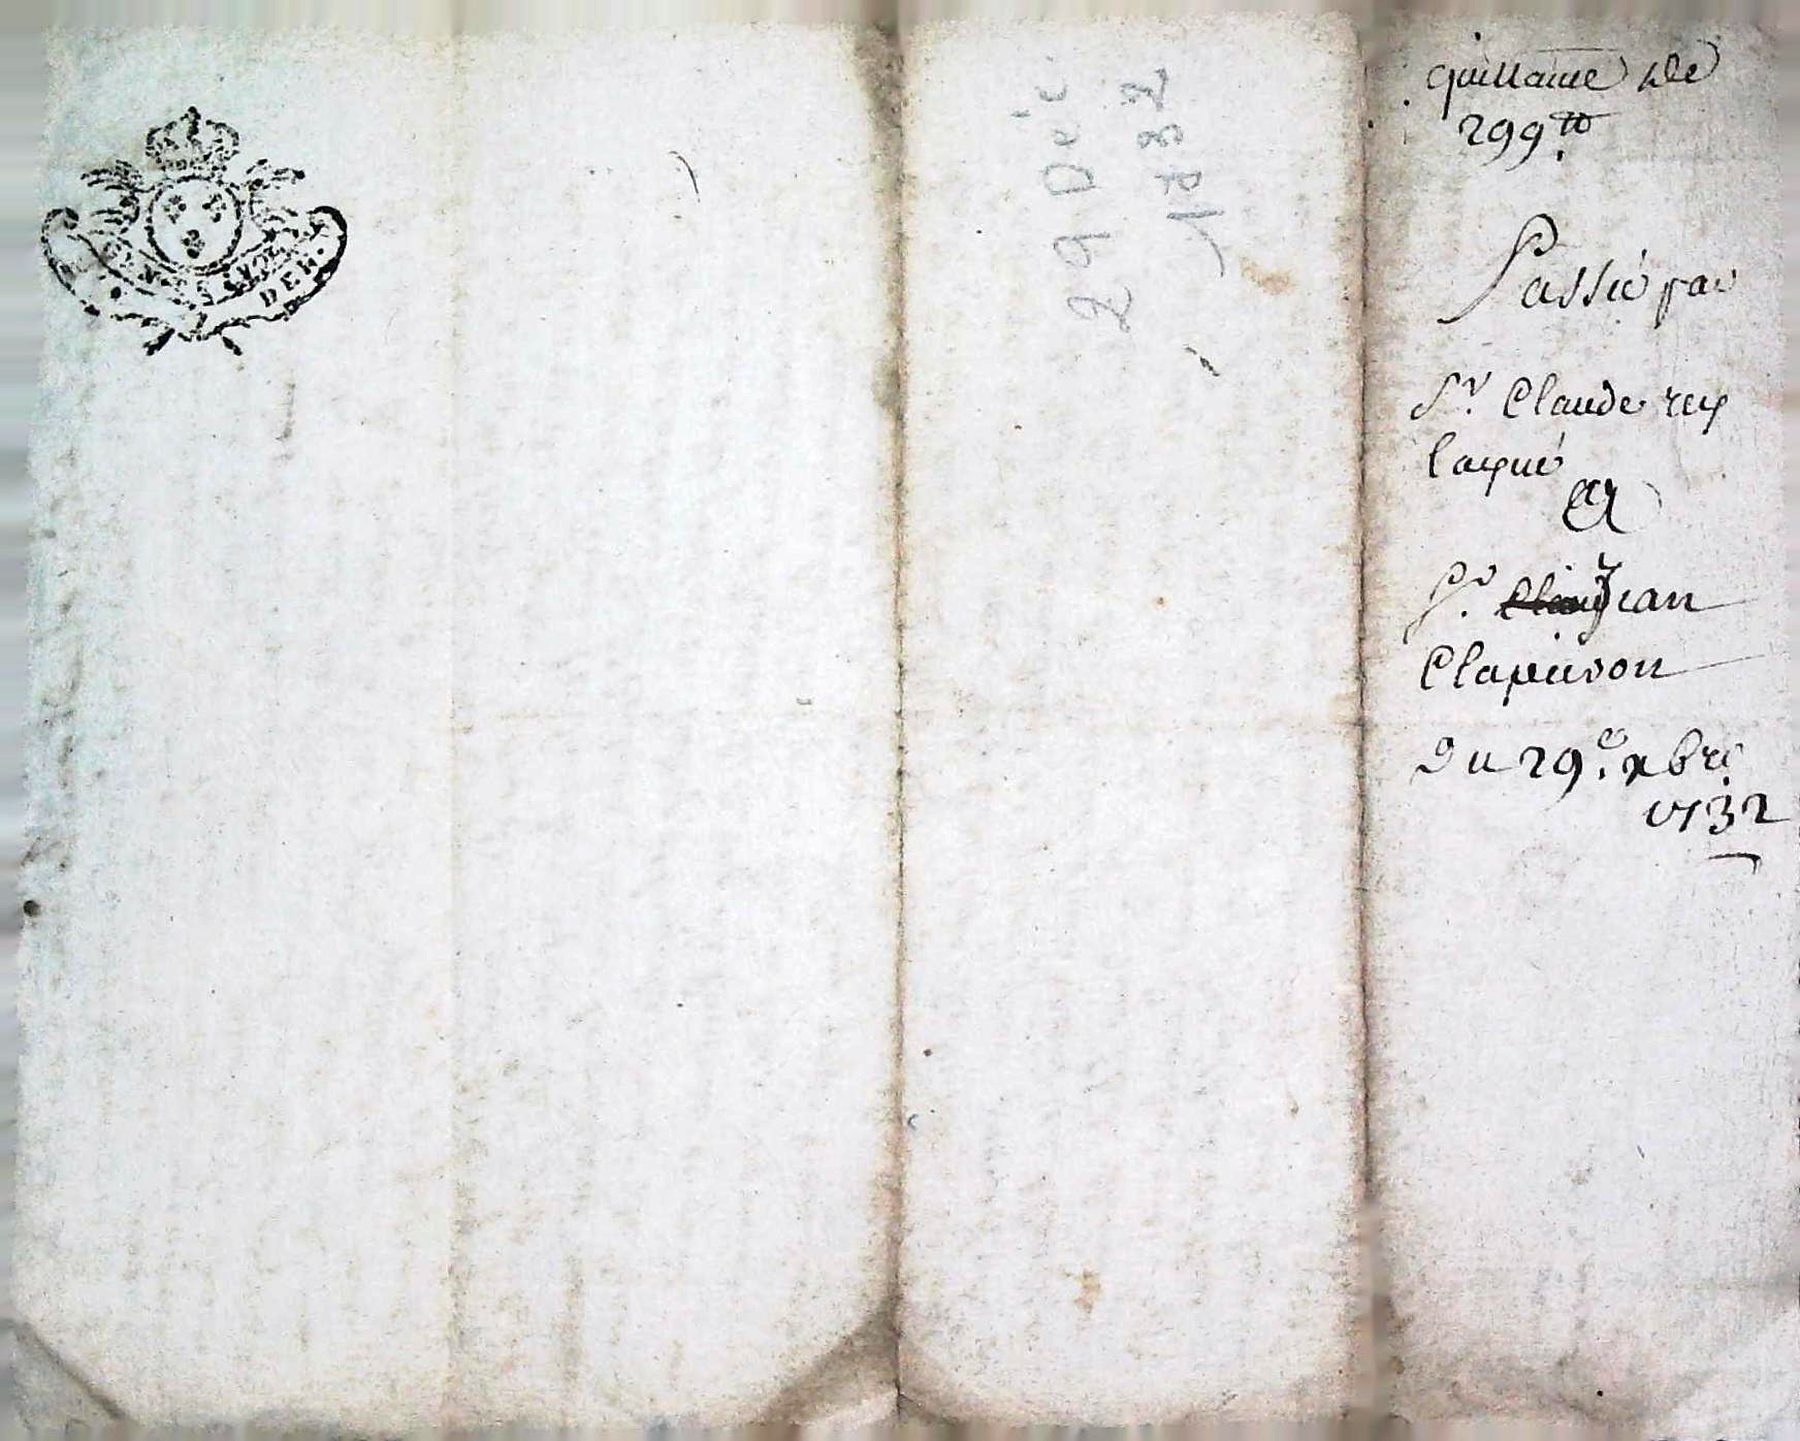 DEN.
29 Déc
1732
quittance de
299 tt
Passée par
Sr. Claude rey
layné
A
Sr. Jean
Clapeiron
Du 29e. xbre
1732